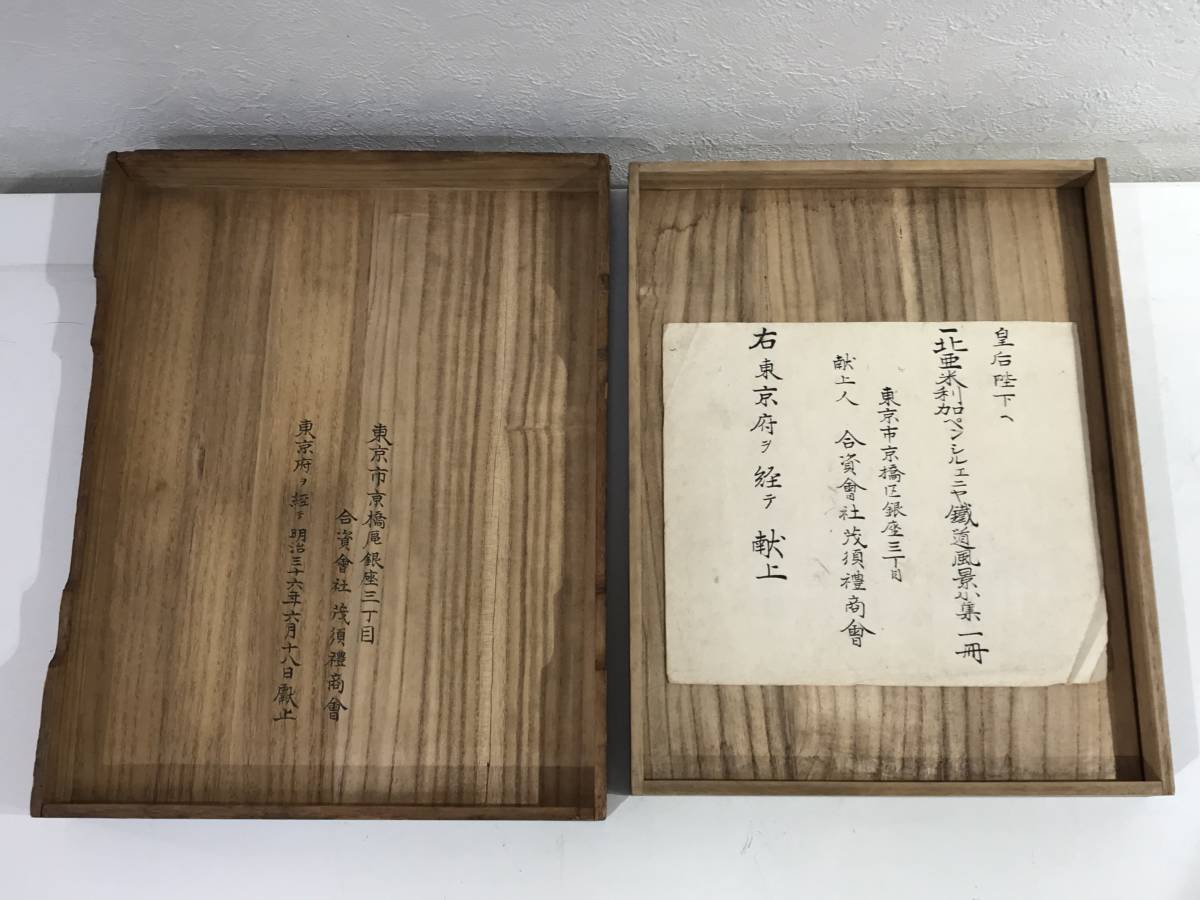 皇后陛下へ
一北亜米利加ペンシルヱニヤ鐵道風景小集一冊
東京市京橋区銀座三丁目
献上人 合資會社茂須禮商會
右東京府ヲ経テ献上
東京市京橋區銀座三丁目
合資會社茂須禮商會
東京府ヲ経テ明治三十六年六月十八日獻上